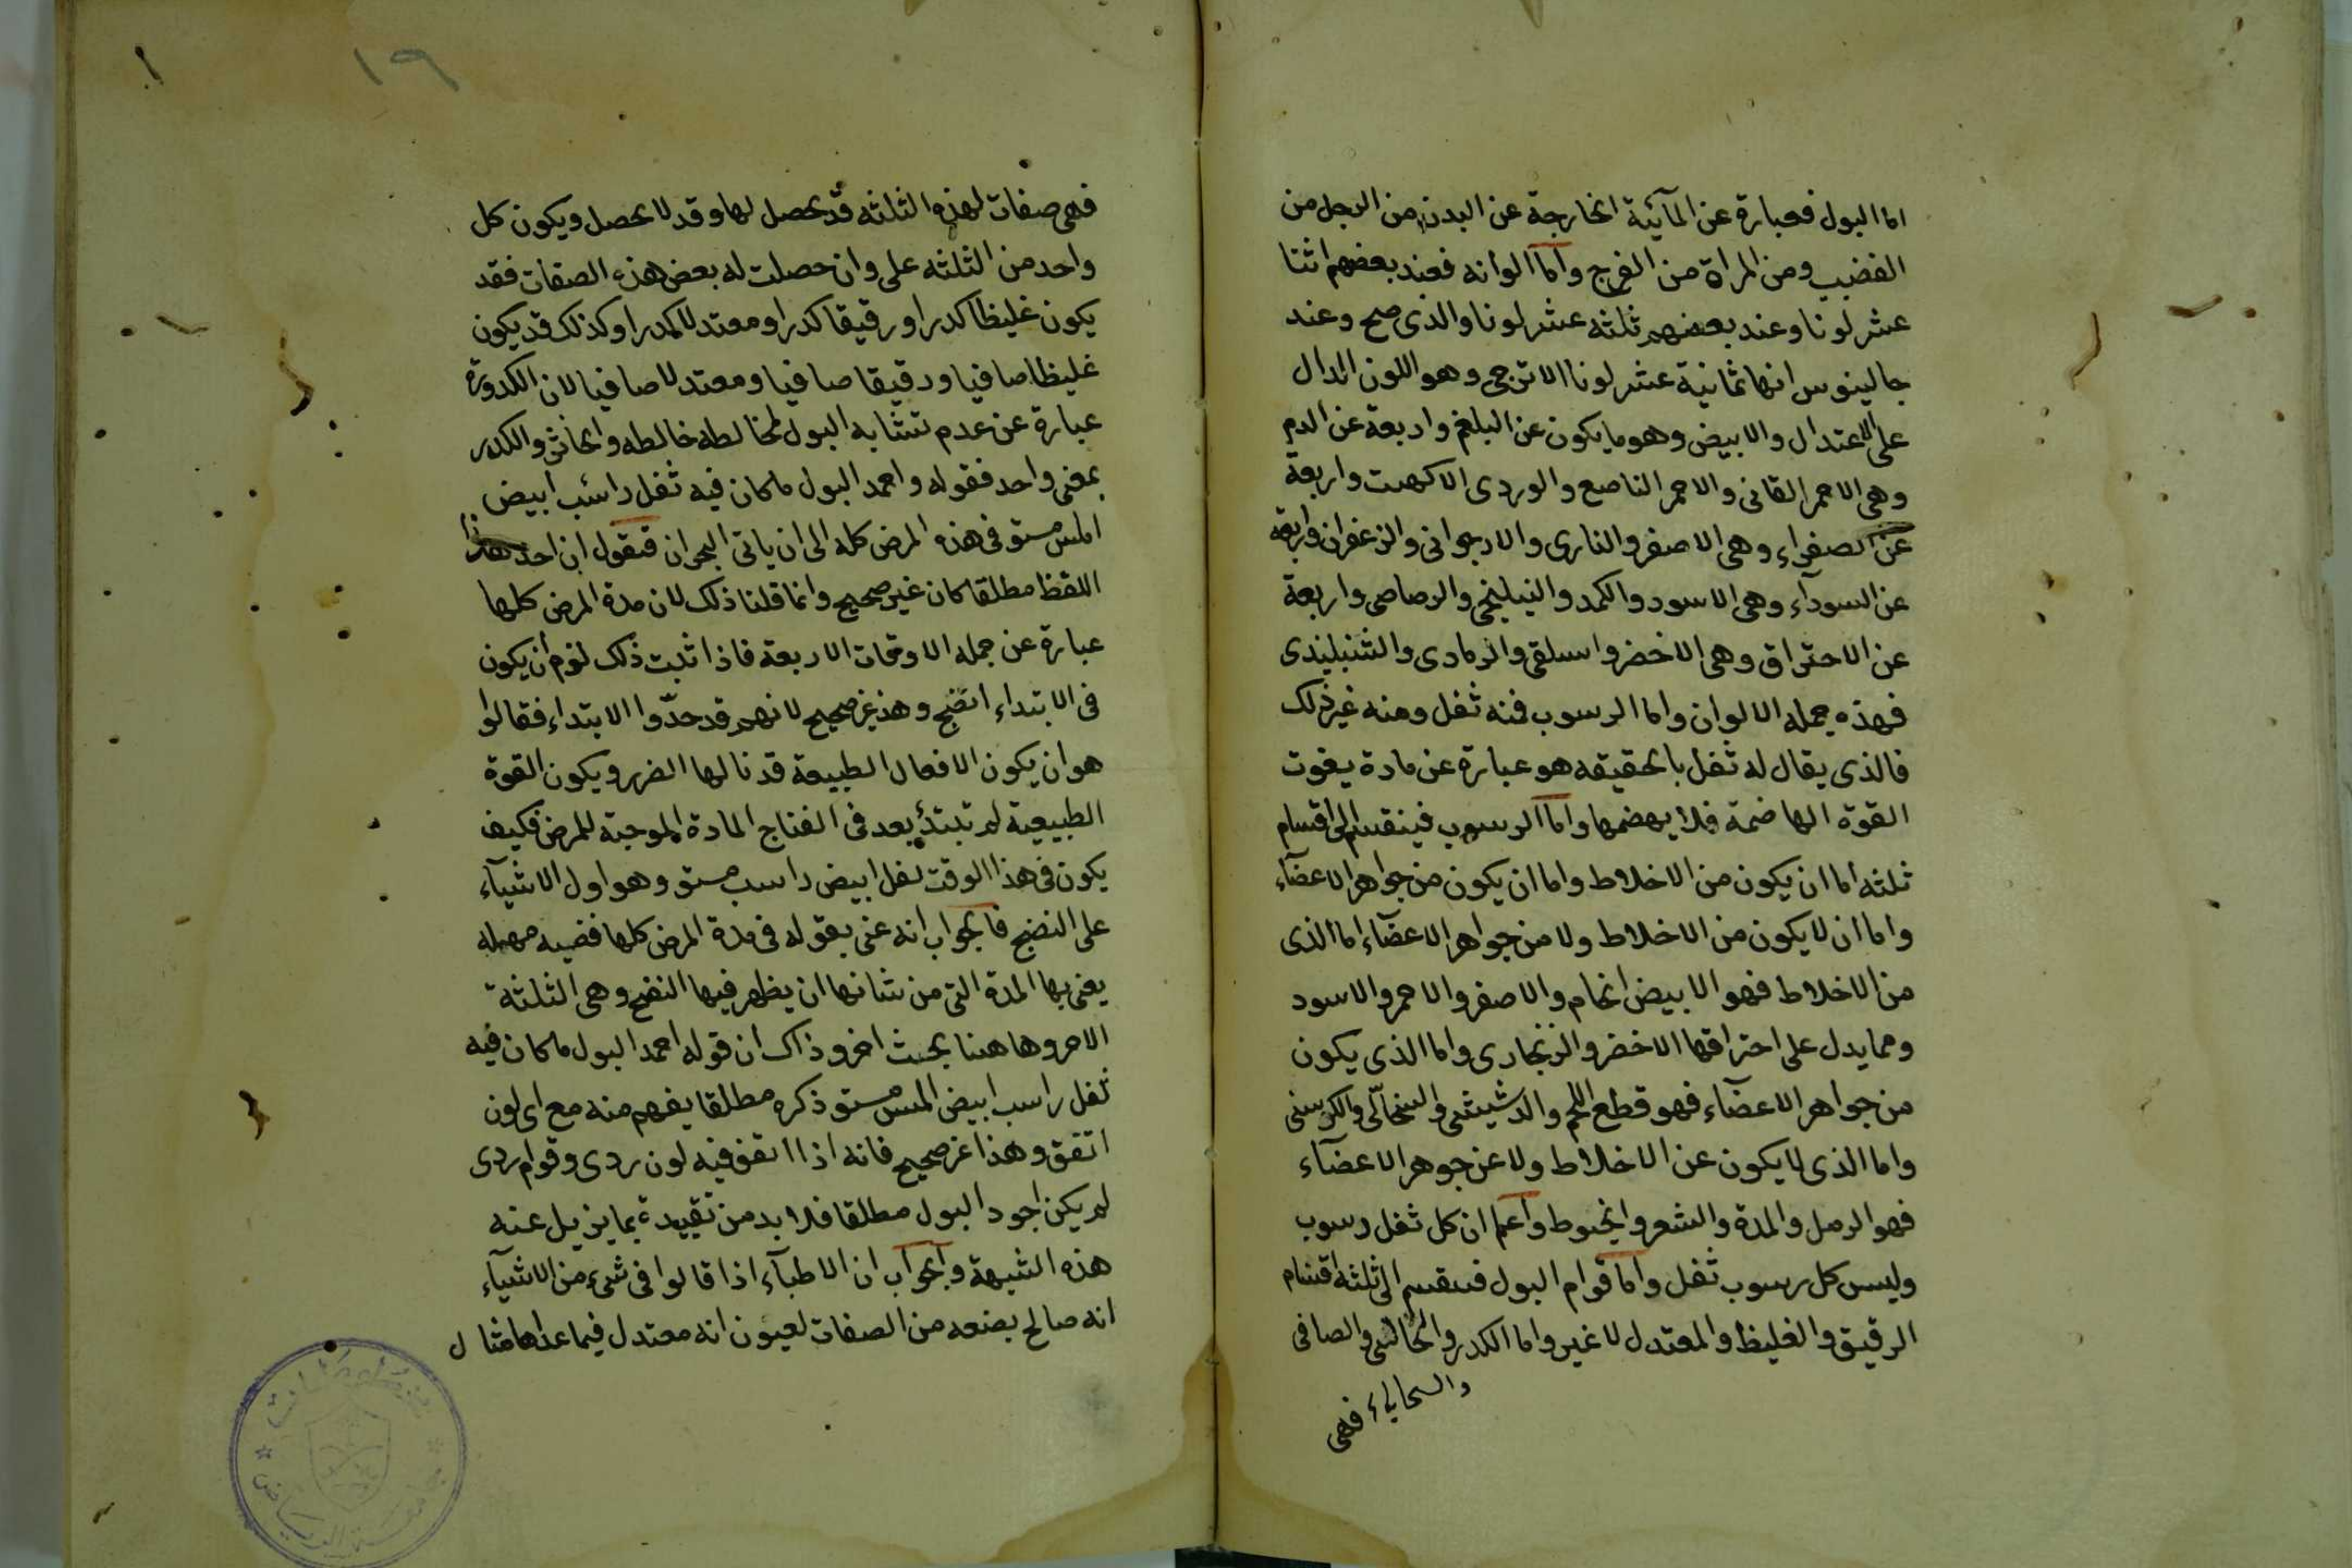 اما البول فعبارة عن المآئية الخارجة عن البدن من الرجل من
القضيب ومن المراة من الفرج واما الوانه فعند بعضهم اثنا
عشر لونا وعند بعضهم ثلثه عشر لونا والذى صح وعند
جالينوس انها ثمانية عشر لونا الاترجى وهو اللون الدال
على الاعتدال والابيض وهو ما يكون عن البلغم واربعة عن الدم
وهى الاحمر القانى والاحمر الناصع والوردى الاكهب واربعة
عن الصفراء وهى الاصفر والنارى والارجوانى والزعفران واربعة
عن السودآء وهى الاسود والكمد والنيلنجى والرصاصى واربعة
عن الاحتراق وهى الاخضر واسلقى والرمادى والشنبليندى
فهذه جمله الالوان واما الرسوب فمنه ثفل ومنه غير ذلك
فالذى يقال له ثفل بالحقيقه هو عبارة عن مادة يفوت
القوة الهاضمة فلا يهضمها واما الرسوب فينقسم الى اقسام
ثلثه اما ان يكون من الاخلاط واما ان يكون من جواهر الاعضآء
واما ان لا يكون من الاخلاط ولا من جواهر الاعضآء اما الذى
من الاخلاط فهو الابيض الخام والاصفر والاحمر والاسود
ومما يدل على احتراقها الاخضر والزنجارى واما الذى يكون
من جواهر الاعضآء فهو قطع اللحم والدشيشى والنخالى والكرسنى
واما الذى لا يكون عن الاخلاط ولا عن جوهر الاعضآء
فهو الرمل والمدة والشعر والخيوط واعلم ان كل ثفل رسوب
وليس كل رسوب ثفل واما قوام البول فينقسم الى ثلثه اقسام
الرقيق والغليظ والمعتدل لا غير واما الكدر والخاثر والصافى
فهى
١٩
فهى صفات لهذه الثلثه قد يحصل لها وقد لا يحصل ويكون كل
واحد من الثلثه على وان حصلت له بعض هذه الصفات فقد
يكون غليظا كدرا ورقيقا كدرا ومعتدلا كدرا وكذلك قد يكون
غليظا صافيا ورقيقا صافيا ومعتدلا صافيا لان الكدورة
عبارة عن عدم تشابه البول لمخالطه خالطه والخاثر والكدر
بمعنى واحد فقوله واحمد البول ما كان فيه ثفل راسب ابيض
املس مستو فى هذه المرض كله الى ان ياتى البحران فنقول ان احد هذا
اللفظ مطلقا كان غير صحيح وانما قلنا ذلك لان مدة المرض كلها
عبارة عن جمله الاوقات الاربعة فاذا ثبت ذلك لزم أن يكون
فى الابتداء انضج وهذ غير صحيح لانهم قد حدّوا الابتداء فقالوا
هو ان يكون الافعال الطبيعة قد نالها الضرر ويكون القوة
الطبيعية لم تبتدئ بعد فى انضاج المادة الموجبة للمرض فكيف
يكون فى هذا الوقت ثفل ابيض راسب مستو وهو اول الاشيآء
على النضج فالجواب انه عنى بقوله فى مدة المرض كلها قضيه مهمله
يعنى بها المدة التى من شانها ان يظهر فيها النضج وهى الثلثة
الاخر وهاهنا بحث اخر وذاك ان قوله احمد البول ما كان فيه
ثفل راسب ابيض املس مستو ذكره مطلقا يفهم منه مع اى لون
اتفق وهذا غير صحيح فانه اذا اتفق فيه لون ردى وقوام ردى
لم يكن اجود البول مطلقا فلا بد من تقييده بما يزيل عنه
هذه الشبهة والجواب ان الاطبآء اذا قالوا فى شىء من الاشيآء
انه صالح بصنعه من الصفات يعنون انه معتدل فيما عداها مثال